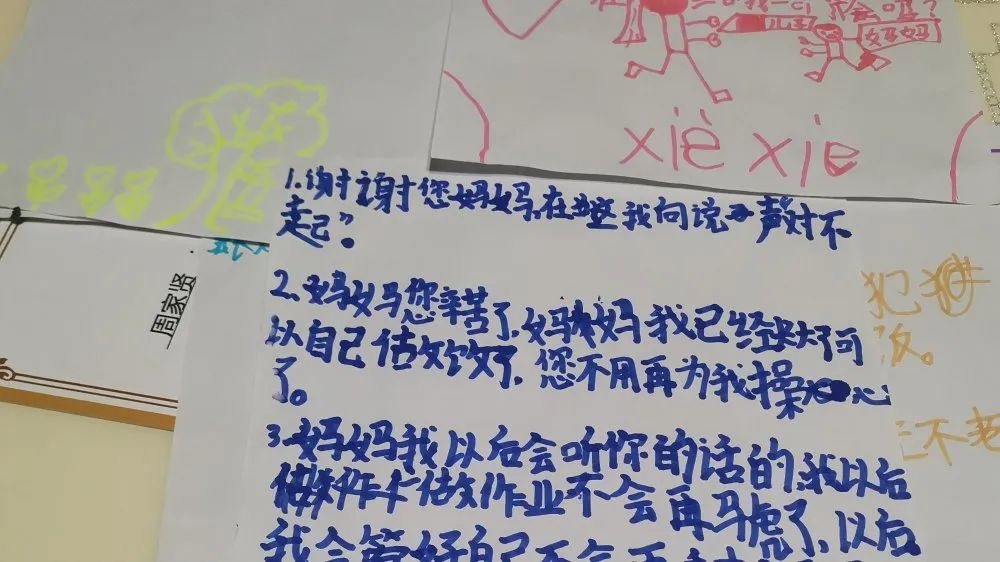 妈妈
xiè xie
周家贤
1.谢谢您妈妈,在这我向说一声“对不
起”。
2.妈妈您辛苦了,妈妈我已经长大了可
以自己做饭了,您不用再为我操心
了。
3.妈妈我以后会听你的话的,我以后
做作业不会再马虎了,以后
我会管好自己不会再
犯
不老